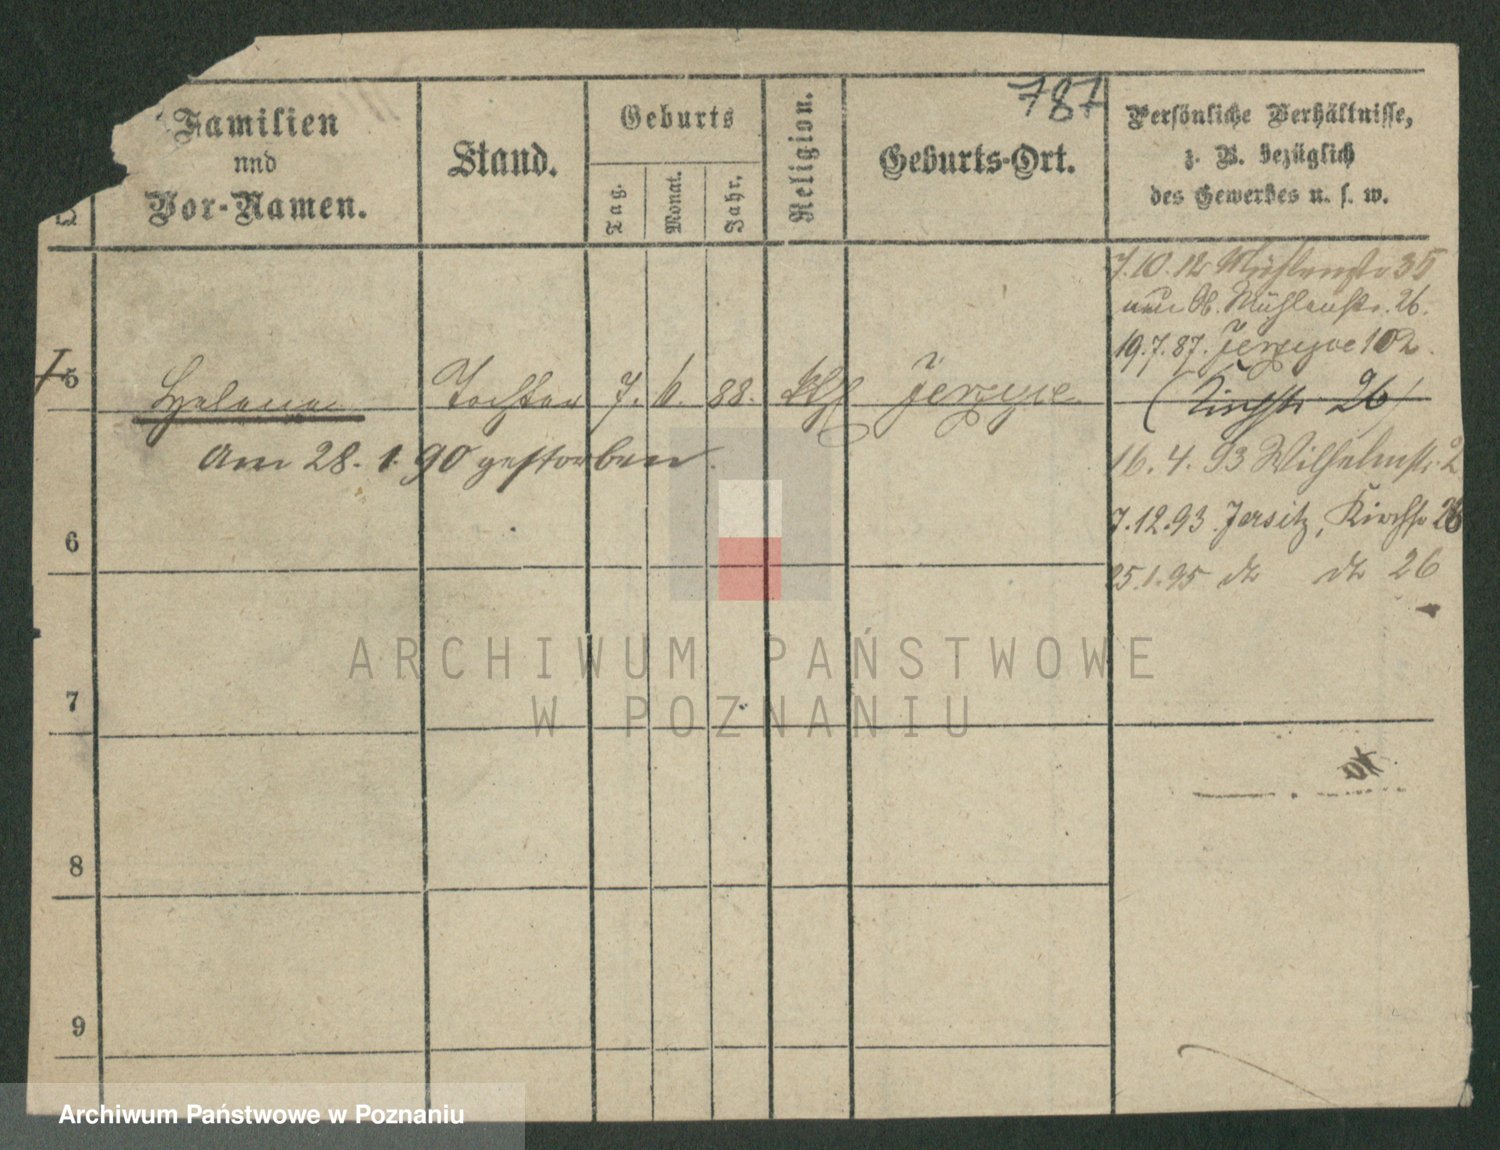 787
Familien
und
Vor-Namen.
Stand.
Geburts
Tag.
Monat.
Jahr.
Religion.
Geburts-Ort.
Persönliche Verhältnisse,
z. B. bezüglich
des Gewerbes u. s. w.
7.10.12 Mühlenstr 35
Mühlenstr. 26.
19.7.87. Jerzyce 102.
5 Helena Tochter 7. 6. 88. kth Jerzyce
26)
Am 28. 1. 90 gestorben.
16. 4. 93 Wilhelmstr. 2
7.12.93. Jersitz, Kirchstr 26
6
25.1.95 do do 26
7
8
9
ARCHIWUM PAŃSTWOWE
W POZNANIU
Archiwum Państwowe w Poznaniu